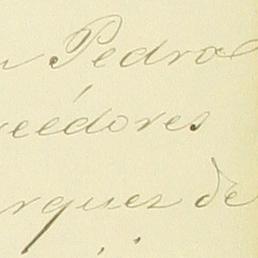 n Pedro
eédores
rquez de